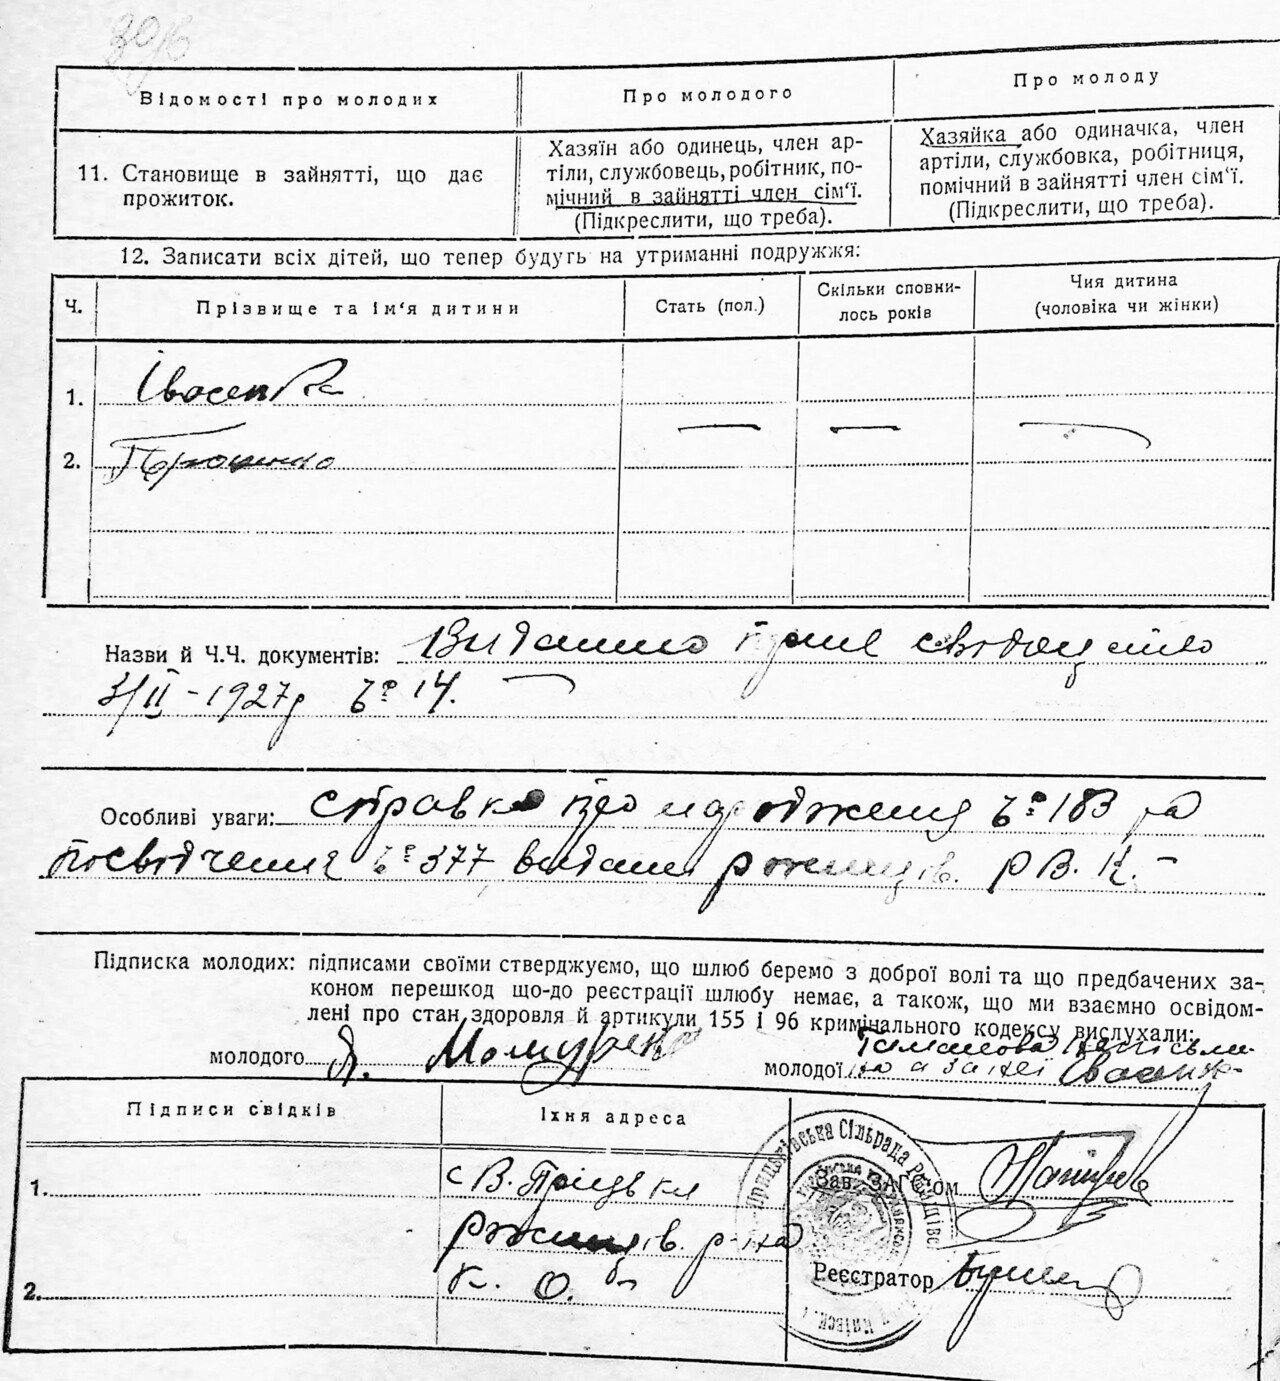 Відомості про молодих
Про молодого
Про молоду
11. Становище в зайнятті, що дає
прожиток.
Хазяїн або одинець, член ар-
тіли, службовець, робітник, по-
мічний в зайнятті член сім'ї.
(Підкреслити, що треба).
Хазяйка або одиначка, член
артіли, службовка, робітниця,
помічний в зайнятті член сім'ї.
(Підкреслити, що треба).
12. Записати всіх дітей, що тепер будуть на утриманні подружжя:
Ч.
Прізвище та ім'я дитини
Стать (пол.)
Скільки сповни-
лось років
Чия дитина
(чоловіка чи жінки)
1.
2.
Назви й Ч.Ч. документів: Видашо
3/II - 1927р № 14.
Особливі уваги: справка про народження № 183 та
посвідчення № 377 видани рокитнів. Р.В.К. –
Підписка молодих: підписами своїми стверджуємо, що шлюб беремо з доброї волі та що предбачених за-
коном перешкод що-до реєстрації шлюбу немає, а також, що ми взаємно освідом-
лені про стан здоровля й артикули 155 і 96 кримінального кодексу вислухали:
молодого Я.
молодої
Підписи свідків
Їхня адреса
1.
с В.
р-на
К. О.
2.
Сільрада
Зав. ЗАГСом
Реєстратор